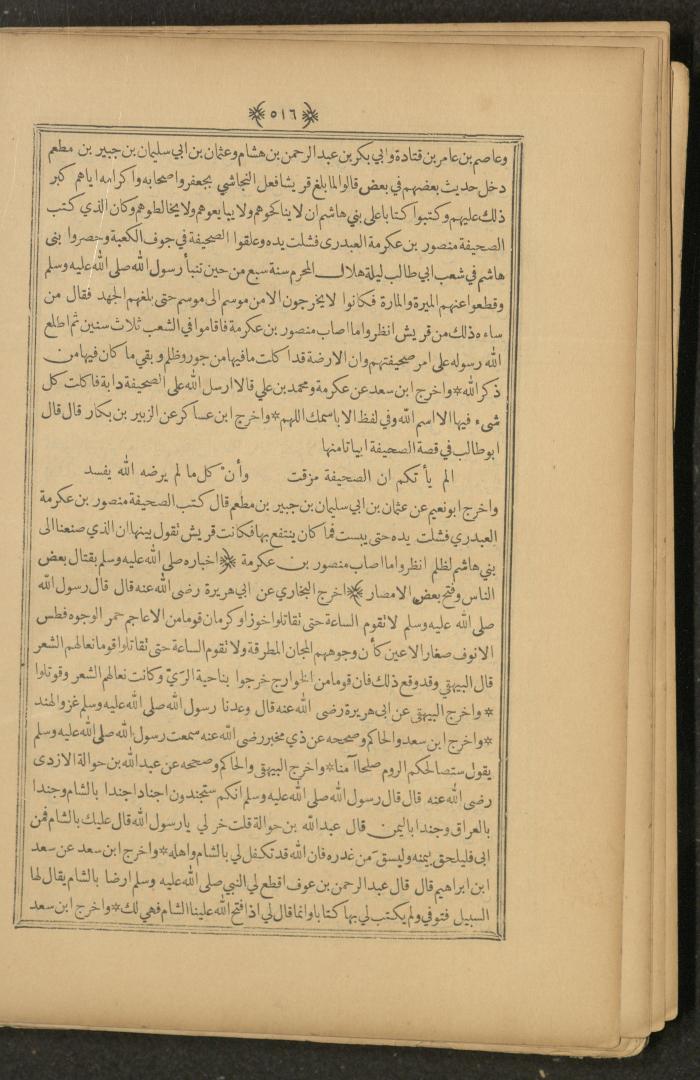 ٥١٦
وعاصم بن عامر بن قتادة وابي بكر بن عبد الرحمن بن هشام وعثمان بن ابي سليمان بن جبير بن مطعم
دخل حديث بعضهم في بعض قالوا لما بلغ قريشا فعل النجاشي بجعفر واصحابه واكرامه اياهم كبر
ذلك عليهم وكتبوا كتابا على بني هاشم ان لا يناكحوهم ولا يبايعوهم ولا يخالطوهم وكان الذي كتب
الصحيفة منصور بن عكرمة العبدرى فشلت يده وعلقوا الصحيفة في جوف الكعبة وحصروا بنى
هاشم في شعب ابي طالب ليلة هلال المحرم سنة سبع من حين تنبأ رسول الله صلى الله عليه وسلم
وقطعوا عنهم الميرة والمارة فكانوا لا يخرجون الا من موسم الى موسم حتى بلغهم الجهد فقال من
ساءه ذلك من قريش انظروا ما اصاب منصور بن عكرمة فاقاموا في الشعب ثلاث سنين ثم اطلع
الله رسوله على امر صحيفتهم وان الارضة قد اكلت ما فيها من جور وظلم و بقي ما كان فيها من
ذكر الله * واخرج ابن سعد عن عكرمة ومحمد بن علي قالا ارسل الله على الصحيفة دابة فاكلت كل
شىء فيها الا اسم الله وفي لفظ الا باسمك اللهم * واخرج ابن عساكر عن الزبير بن بكار قال قال
ابو طالب في قصة الصحيفة ابياتا منها
الم يأتكم ان الصحيفة مزقت وأن كل ما لم يرضه الله يفسد
واخرج ابو نعيم عن عثمان بن ابي سليمان بن جبير بن مطعم قال كتب الصحيفة منصور بن عكرمة
العبدري فشلت يده حتى يبست فما كان ينتفع بها فكانت قريش تقول بينها ان الذي صنعنا الى
بني هاشم لظلم انظروا ما اصاب منصور بن عكرمة ﴿ اخباره صلى الله عليه وسلم بقتال بعض
الناس وفتح بعض الامصار ﴾ اخرج البخاري عن ابي هريرة رضى الله عنه قال قال رسول الله
صلى الله عليه وسلم لا تقوم الساعة حتى تقاتلوا خوزا وكرمان قوما من الاعاجم حمر الوجوه فطس
الانوف صغار الاعين كأن وجوههم المجان المطرقة ولا تقوم الساعة حتى تقاتلوا قوما نعالهم الشعر
قال البيهقي وقد وقع ذلك فان قوما من الخوارج خرجوا بناحية الريّ وكانت نعالهم الشعر وقوتلوا
* واخرج البيهقي عن ابى هريرة رضى الله عنه قال وعدنا رسول الله صلى الله عليه وسلم غزو الهند
* واخرج ابن سعد والحاكم وصححه عن ذي مخبر رضى الله عنه سمعت رسول الله صلى الله عليه وسلم
يقول ستصالحكم الروم صلحا آمنا * واخرج البيهقي والحاكم وصححه عن عبد الله بن حوالة الازدى
رضى الله عنه قال قال رسول الله صلى الله عليه وسلم انكم ستجندون اجنادا جندا بالشام وجندا
بالعراق وجندا باليمن قال عبد الله بن حوالة قلت خر لي يا رسول الله قال عليك بالشام فمن
ابى فليلحق بيمنه وليسق من غدره فان الله قد تكفل لي بالشام واهله * واخرج ابن سعد عن سعد
ابن ابراهيم قال قال عبد الرحمن بن عوف اقطع لي النبي صلى الله عليه وسلم ارضا بالشام يقال لها
السبيل فتوفي ولم يكتب لي بها كتابا وانما قال لي اذا فتح الله علينا الشام فهي لك * واخرج ابن سعد